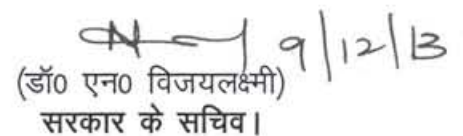 9/12/13
(डॉ0 एन0 विजयलक्ष्मी)
सरकार के सचिव।